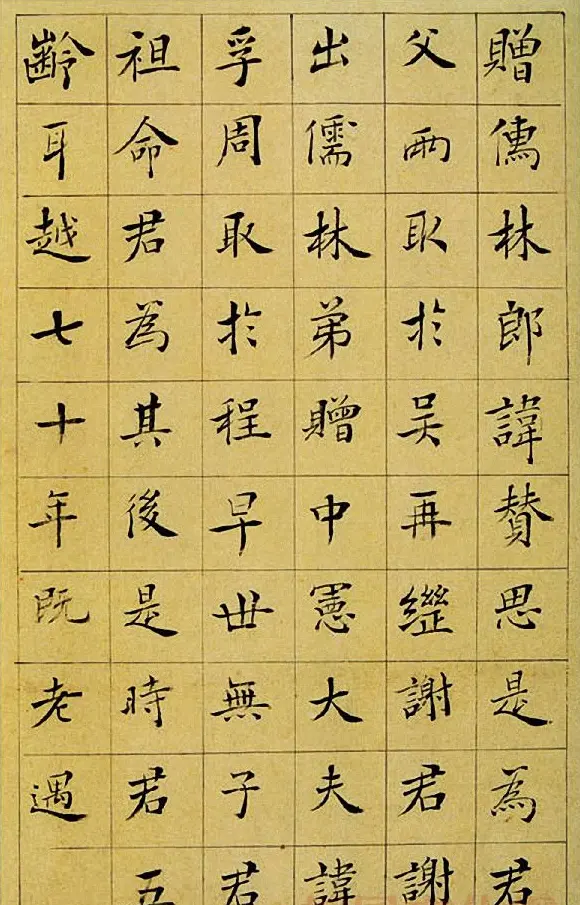 贈儒林郎諱賛思是為君
父兩取於吴再繼謝君謝
出儒林弟贈中憲大夫諱
孚周取於程早世無子君
祖命君為其後是時君五
齡耳越七十年既老遇